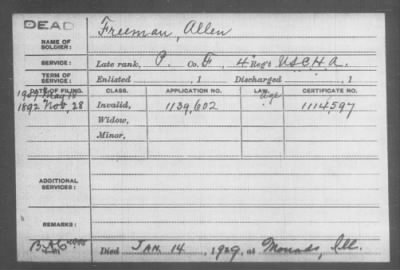 DEAD
NAME OF SOLDIER: Freeman, Allen
SERVICE: Late rank, P. Co. F, 4" Reg't U.S.C.H.A.
TERM OF SERVICE: Enlisted , 1 Discharged , 1
DATE OF FILING. CLASS. APPLICATION NO. LAW. CERTIFICATE NO.
1907 May 18 age
1892 Nov, 28 Invalid, 1139,602 1114,597
Widow,
Minor,
ADDITIONAL SERVICES:
REMARKS:
Died JAN. 14, 1929, at Mounds, Ill.